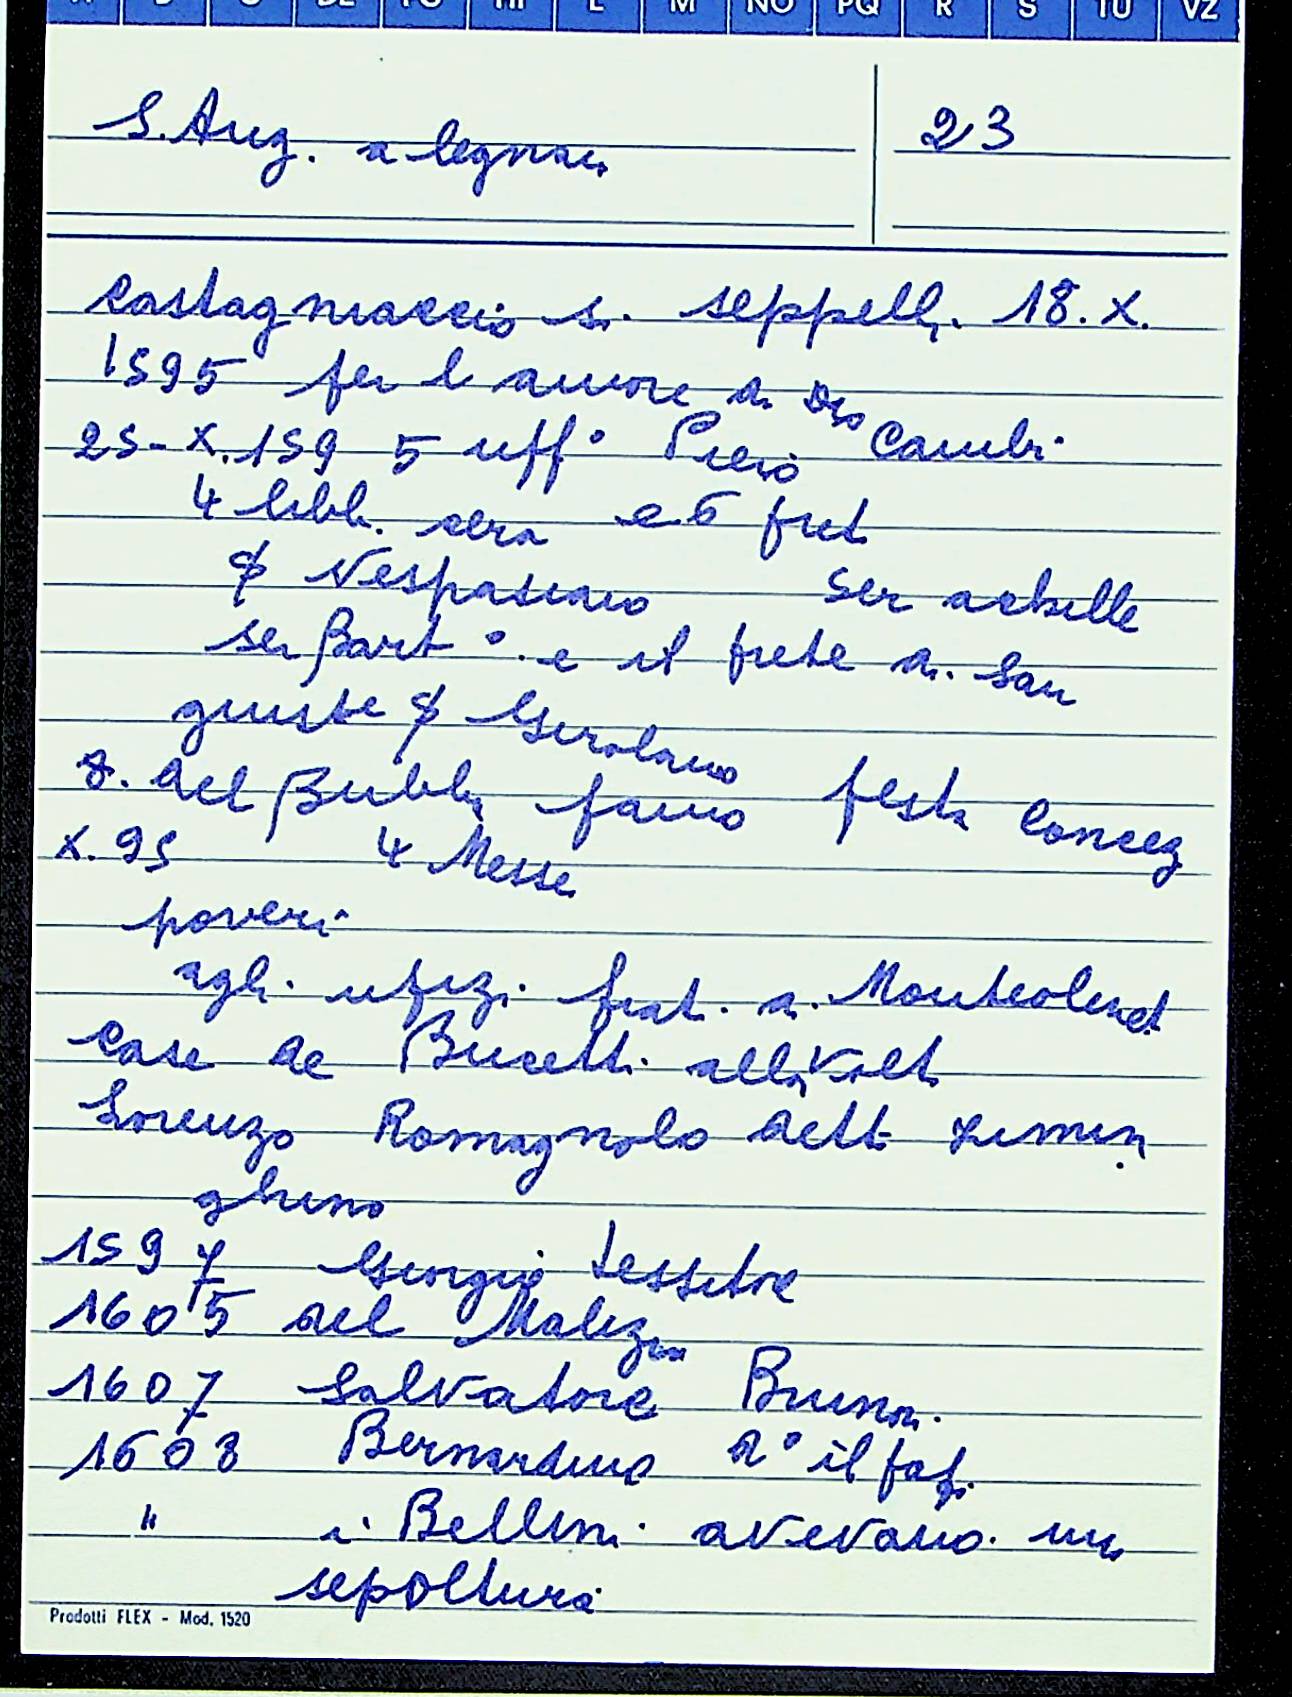 DE FG HI L M NO PQ R S TU VZ
S. Aug. a legnaia
23
Castagnaccio si seppellì 18. X.
1595 per l amore di Dio
25-X.1595 uff° Piero Cambi
4 libb. cera e 6 fret
Vespasiano Ser achille
ser Bart°. e il frete di San
giuste Girolamo
8. del Bubbli fanno festa Concez
X. 95 4 Messe
poveri
agli ufizi frat. di Monteolivet
Case de Bucetti alla Volt
Lorenzo Romagnolo dett ximin
ghino
1597 Giorgio tessitore
1605 del Malizia
1607 Salvatore Brunori
1608 Bernardino d° il fafi
" i Bellini avevano una
sepoltura
Prodotti FLEX - Mod. 1520